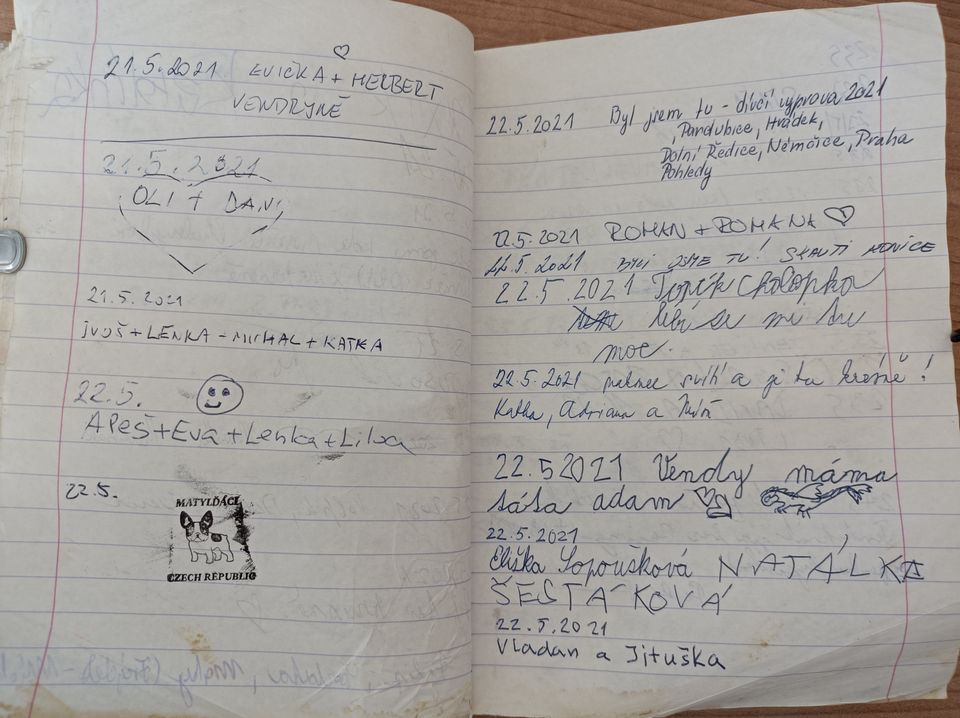 21.5.2021 EVIČKA + HERBERT
VENDRYNĚ
21.5.2021
OLI + DANI
21.5.2021
IVOŠ + LENKA - MICHAL + KATKA
22.5.
APeš+Eva+Lenka+Liba
22.5.
MATYLĎÁCI
CZECH REPUBLIC
22.5.2021 Byl jsem tu - dívčí výprava 2021
Pardubice, Hrádek,
Dolní Ředice, Němčice, Praha
Pohledy
22.5.2021 ROMAN + ROMANA
22.5.2021 BYLI JSME TU! SKAUTI
22.5.2021 Topík
líbí se mi tu
moc.
22.5.2021 svítí a je tu krásně!
Katka, Adriana a
22.5 2021 Vendy máma
táta adam
22.5.2021
Eliška Lopoušková NATÁLKA
ŠESTÁKOVÁ
22.5.2021
Vladan a Jituška